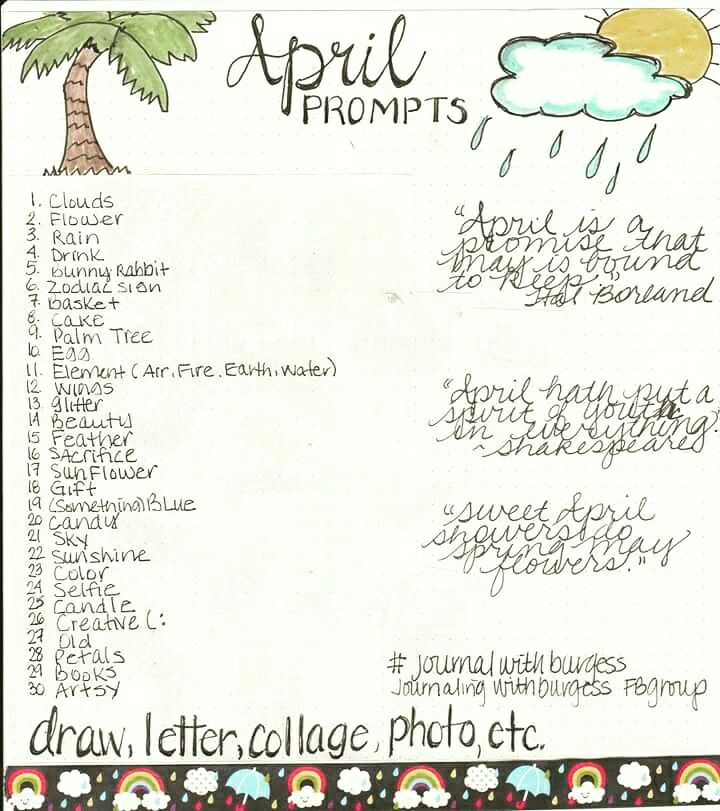 April
PROMPTS
1. Clouds
2. Flower
3. Rain
4. Drink
5. Bunny Rabbit
6. Zodiac sign
7. basket
8. Cake
9. Palm Tree
10. Egg
11. Element (Air, Fire, Earth, Water)
12. Wings
13. glitter
14 Beauty
15 Feather
16 SAcrifice
17 SunFlower
18 Gift
19 (Something) BLue
20 Candy
21 Sky
22 Sunshine
23 Color
24 Selfie
25 Candle
26 Creative (:
27 Old
28 Petals
29 Books
30 Artsy
"April is a
promise that
may is bound
to keep."
Hal Borland
"April hath put a
spirit of youth
in everything."
~ Shakespeare
"sweet April
showers do
spring may
flowers."
# journal with burgess
Journaling with burgess FB group
draw, letter, collage, photo, etc.